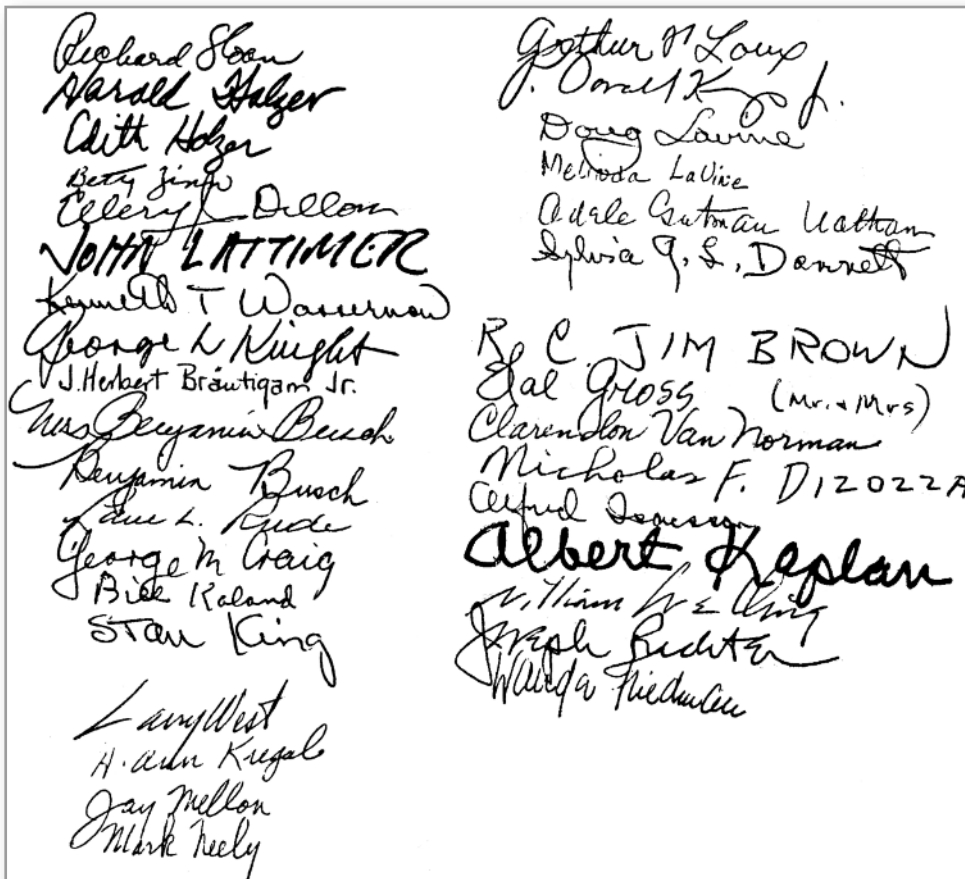 Richard Sloan
Harold Holzer
Edith Holzer
Betty
Ellery L Dillon
JOHN LATTIMER
Kenneth T Wasserman
George L Knight
J. Herbert Bräutigam Jr.
Miss Benjamin Busch
Benjamin Busch
L. Rude
George M Craig
Bill Kaland
Stan King
Larry West
H. Ann Kregal
Jay Mellon
Mark Neely
Arthur Loux
J. Donald Jr.
Doug Lavine
Melinda LaVine
Adele Gutman Nathan
Sylvia G. L. Dannett
R C JIM BROWN
Hal Gross (Mr. & Mrs)
Clarendon Van Norman
Nicholas F. DIZOZZA
Alfred Isaacson
Albert Kaplan
William
Joseph Richter